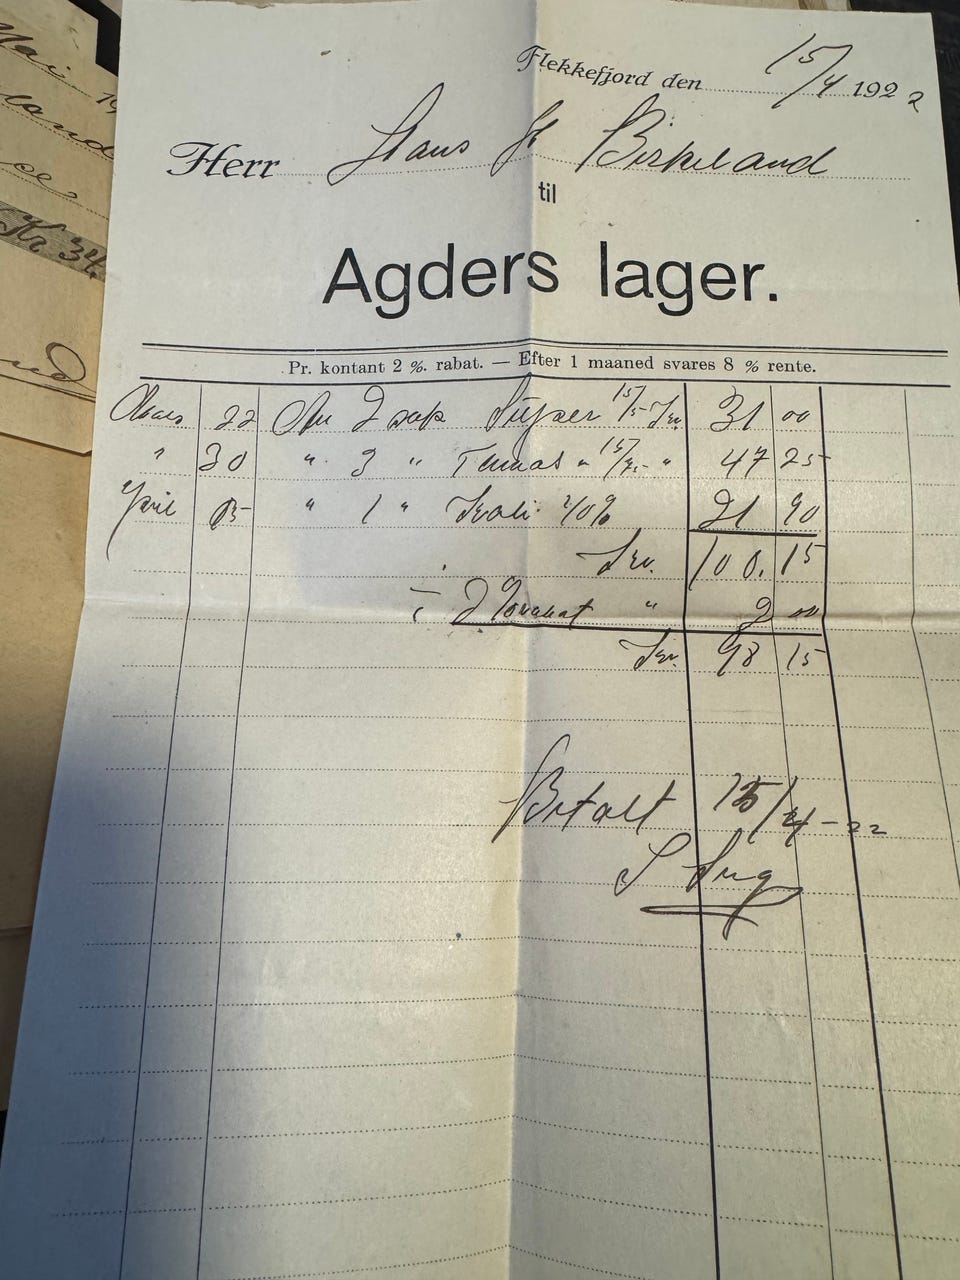 Flekkefjord den 15/4 1922
Herr Hans H Birkeland
til
Agders lager.
Pr. kontant 2 %. rabat. — Efter 1 maaned svares 8 % rente.
Mars 22 An 2 sæk Super 15/5- Kr. 31 00
" 30 " 3 " Tomas " 15/75- " 47 25
April 5 " 1 " Kali 40% 21 90
Kr. 100.15
÷ 2 % " 2 00
Kr. 98 15
Betalt 15/4-22
Mai 19
land
Kr 34